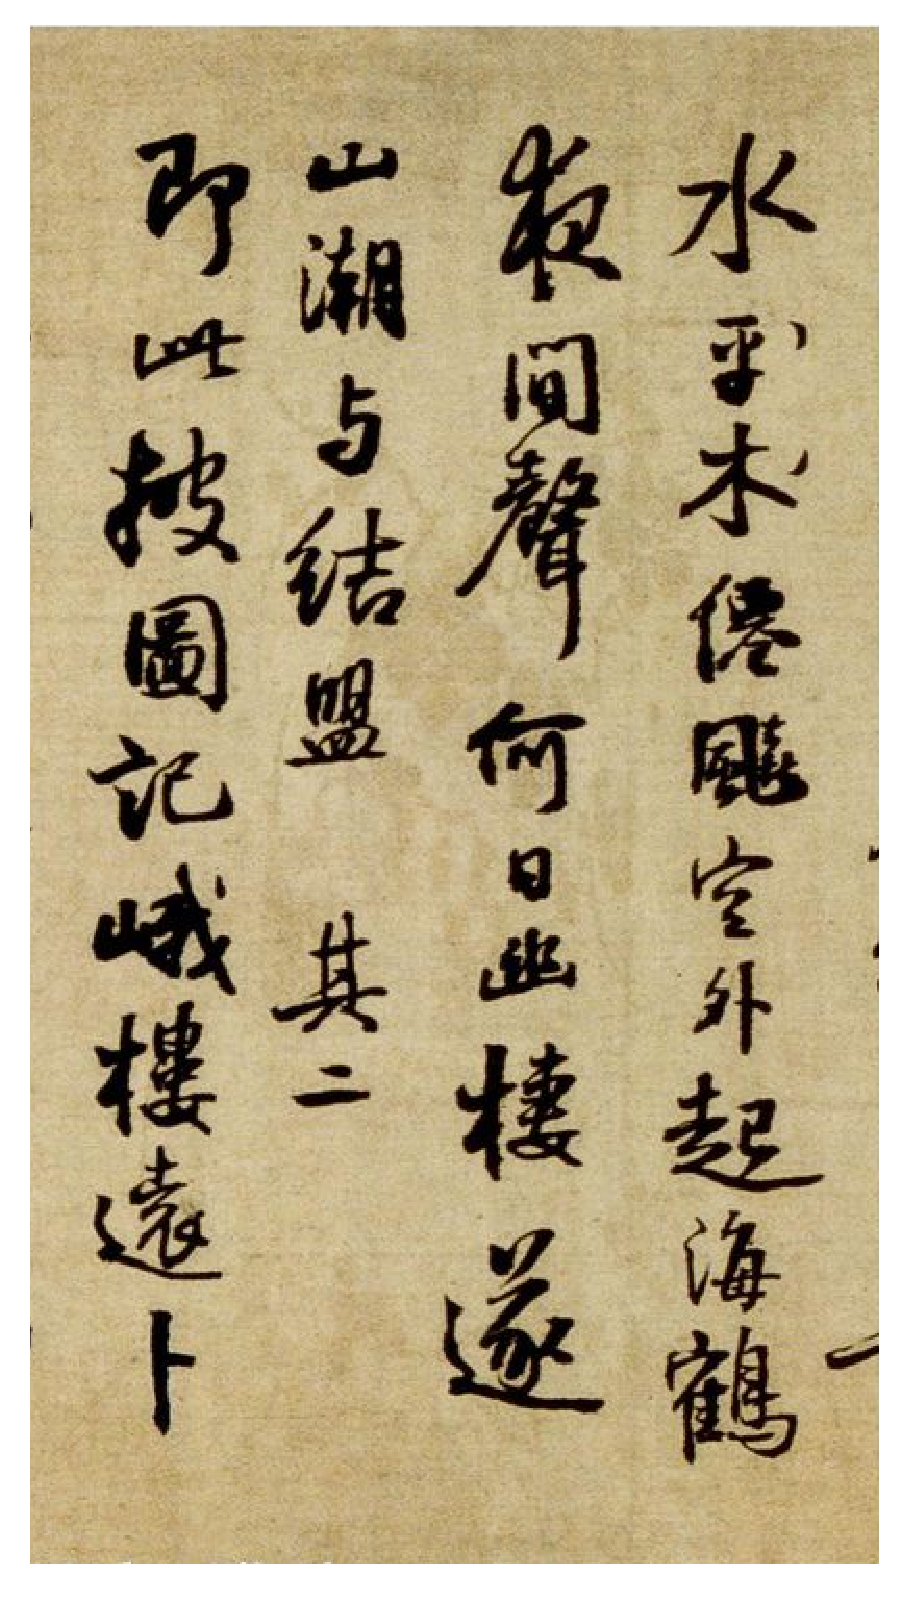 水平木僊飈空外起海鶴
夜間聲何日幽棲遂
山潮与結盟 其二
即此披圖記峨樓遠卜